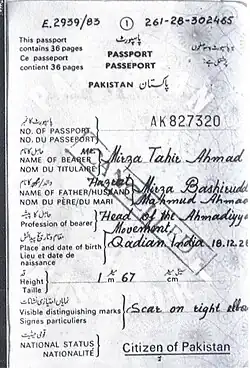 E.2939/83 1 261-28-302465
This passport پاسپورٹ
contains 36 pages PASSPORT
Ce passeport PASSEPORT
contient 36 pages
PAKISTAN پاکستان
NO. OF PASSPORT AK827320
NO. DU PASSEPORT
NAME OF BEARER Mr. Mirza Tahir Ahmad
NOM DU TITULAIRE
NAME OF FATHER/HUSBAND Hazrat Mirza Bashiruddin
NOM DU PÈRE/DU MARI Mahmud Ahmad
Profession of bearer Head of the Ahmadiyya
Movement
Place and date of birth Qadian India 18.12.28
Lieu et date de
naissance
قد
Height 1 m 67 cm
Taille
Visible distinguishing marks Scar on right elbow
Signes particuliers
NATIONAL STATUS Citizen of Pakistan
NATIONALITÉ